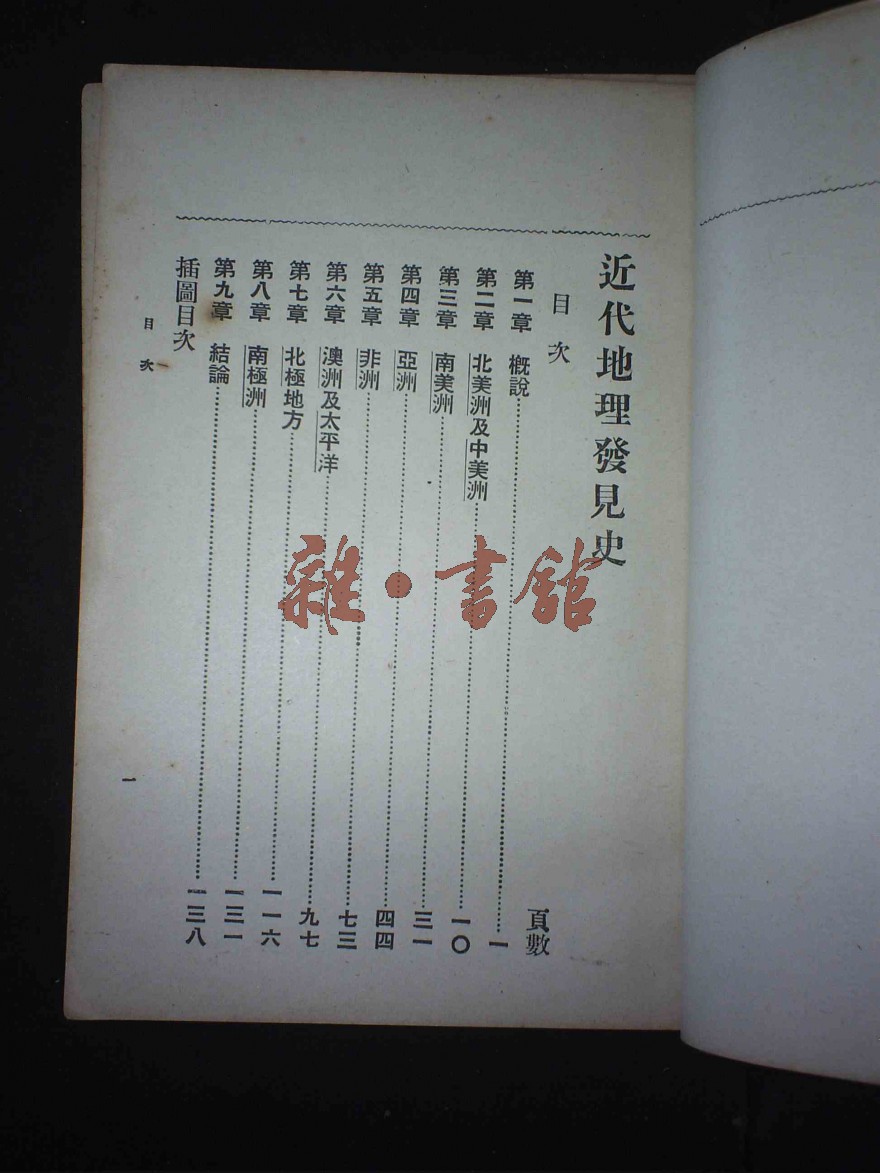 近代地理發見史
目次
頁數
第一章 概說……一
第二章 北美洲及中美洲……一〇
第三章 南美洲……三一
第四章 亞洲……四四
第五章 非洲……七三
第六章 澳洲及太平洋……九七
第七章 北極地方……一一六
第八章 南極洲……一三一
第九章 結論……一三八
插圖目次
目次
一
雜·書館